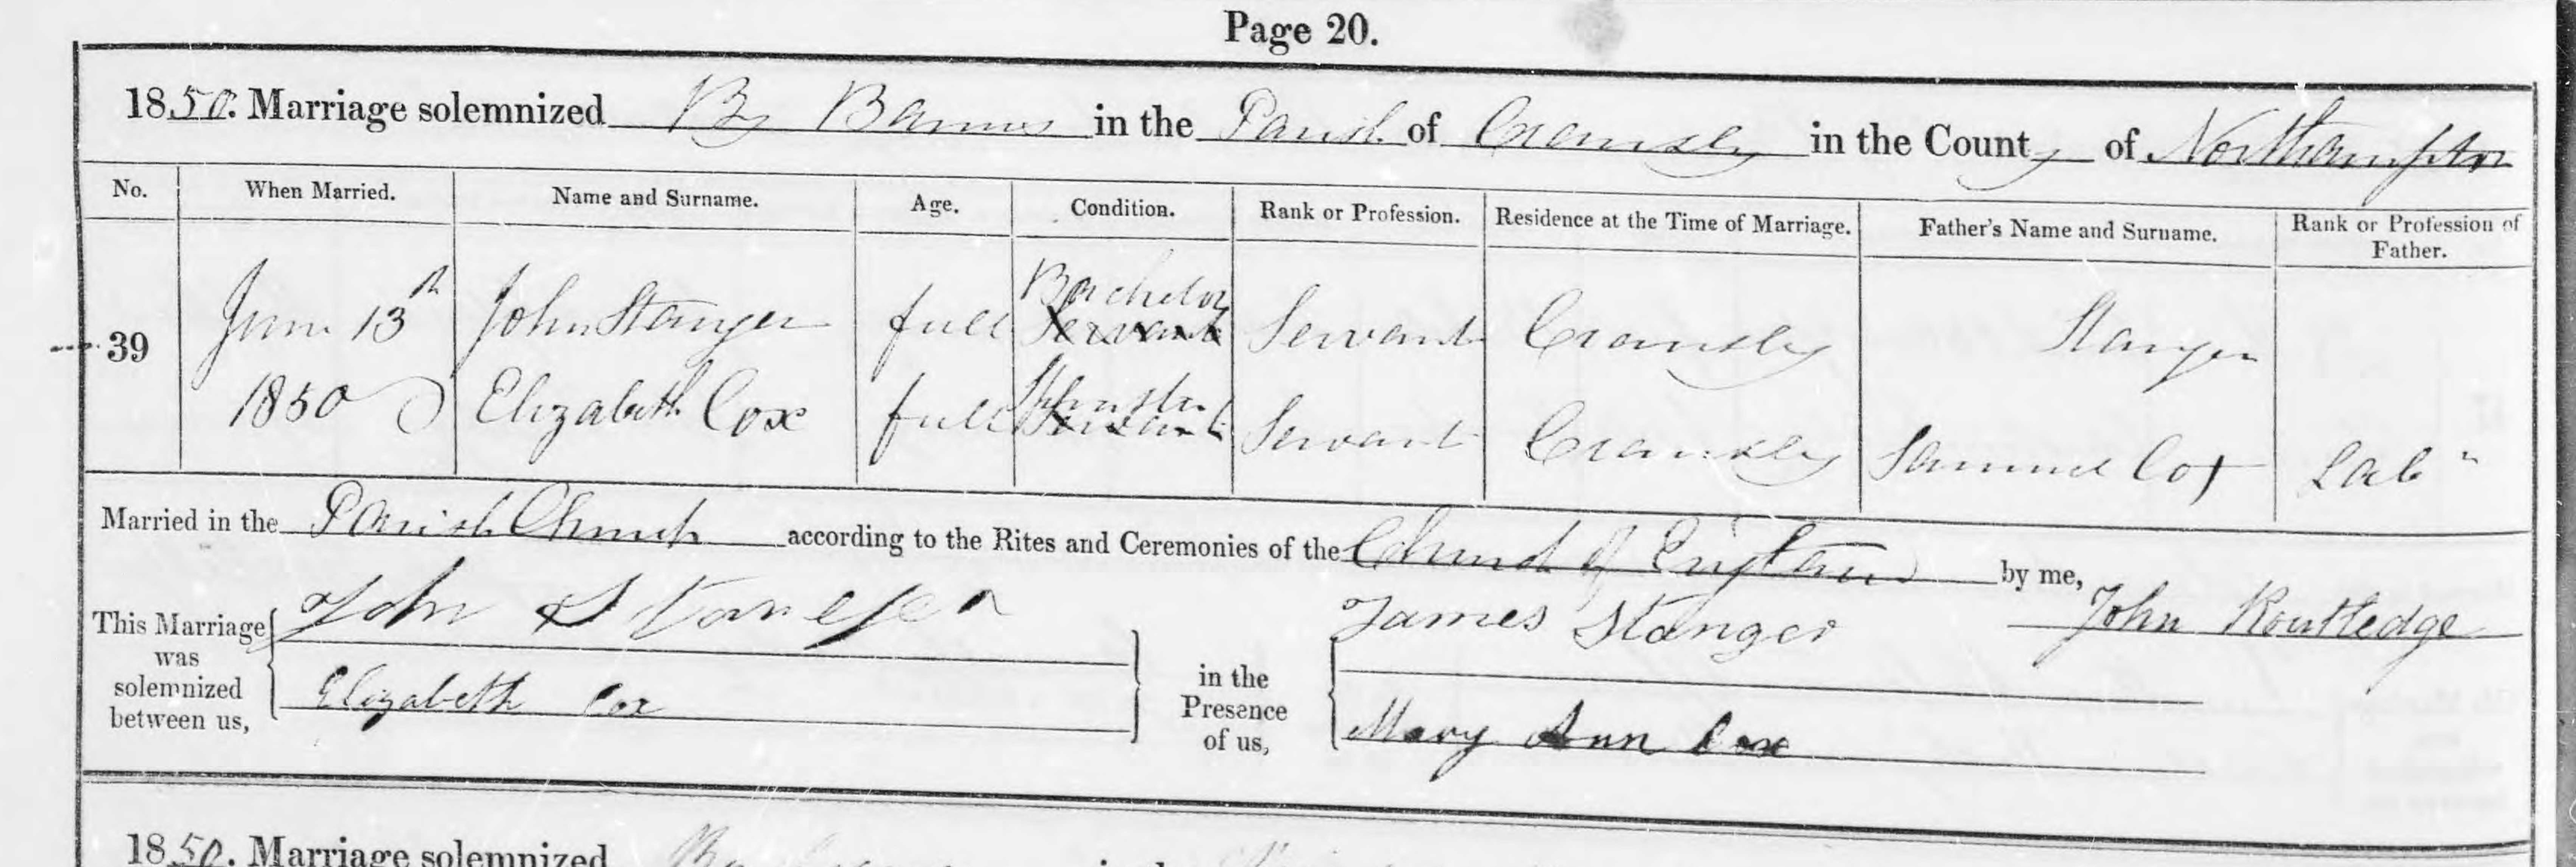 Page 20.
1850. Marriage solemnized By Banns in the Parish of Cransley in the County of Northampton
No. When Married. Name and Surname. Age. Condition. Rank or Profession. Residence at the Time of Marriage. Father's Name and Surname. Rank or Profession of Father.
Bachelor
39 June 13th John Stanger full Servant Servant Cransley Stanger
Spinster
1850 Elizabeth Cox full Servant Servant Cransley Samuel Cox Lab"
Married in the Parish Church according to the Rites and Ceremonies of the Church of England by me, John Routledge
This Marriage was solemnized between us, John Stanger Elizabeth Cox in the Presence of us, James Stanger Mary Ann Cox
1850. Marriage solemnized